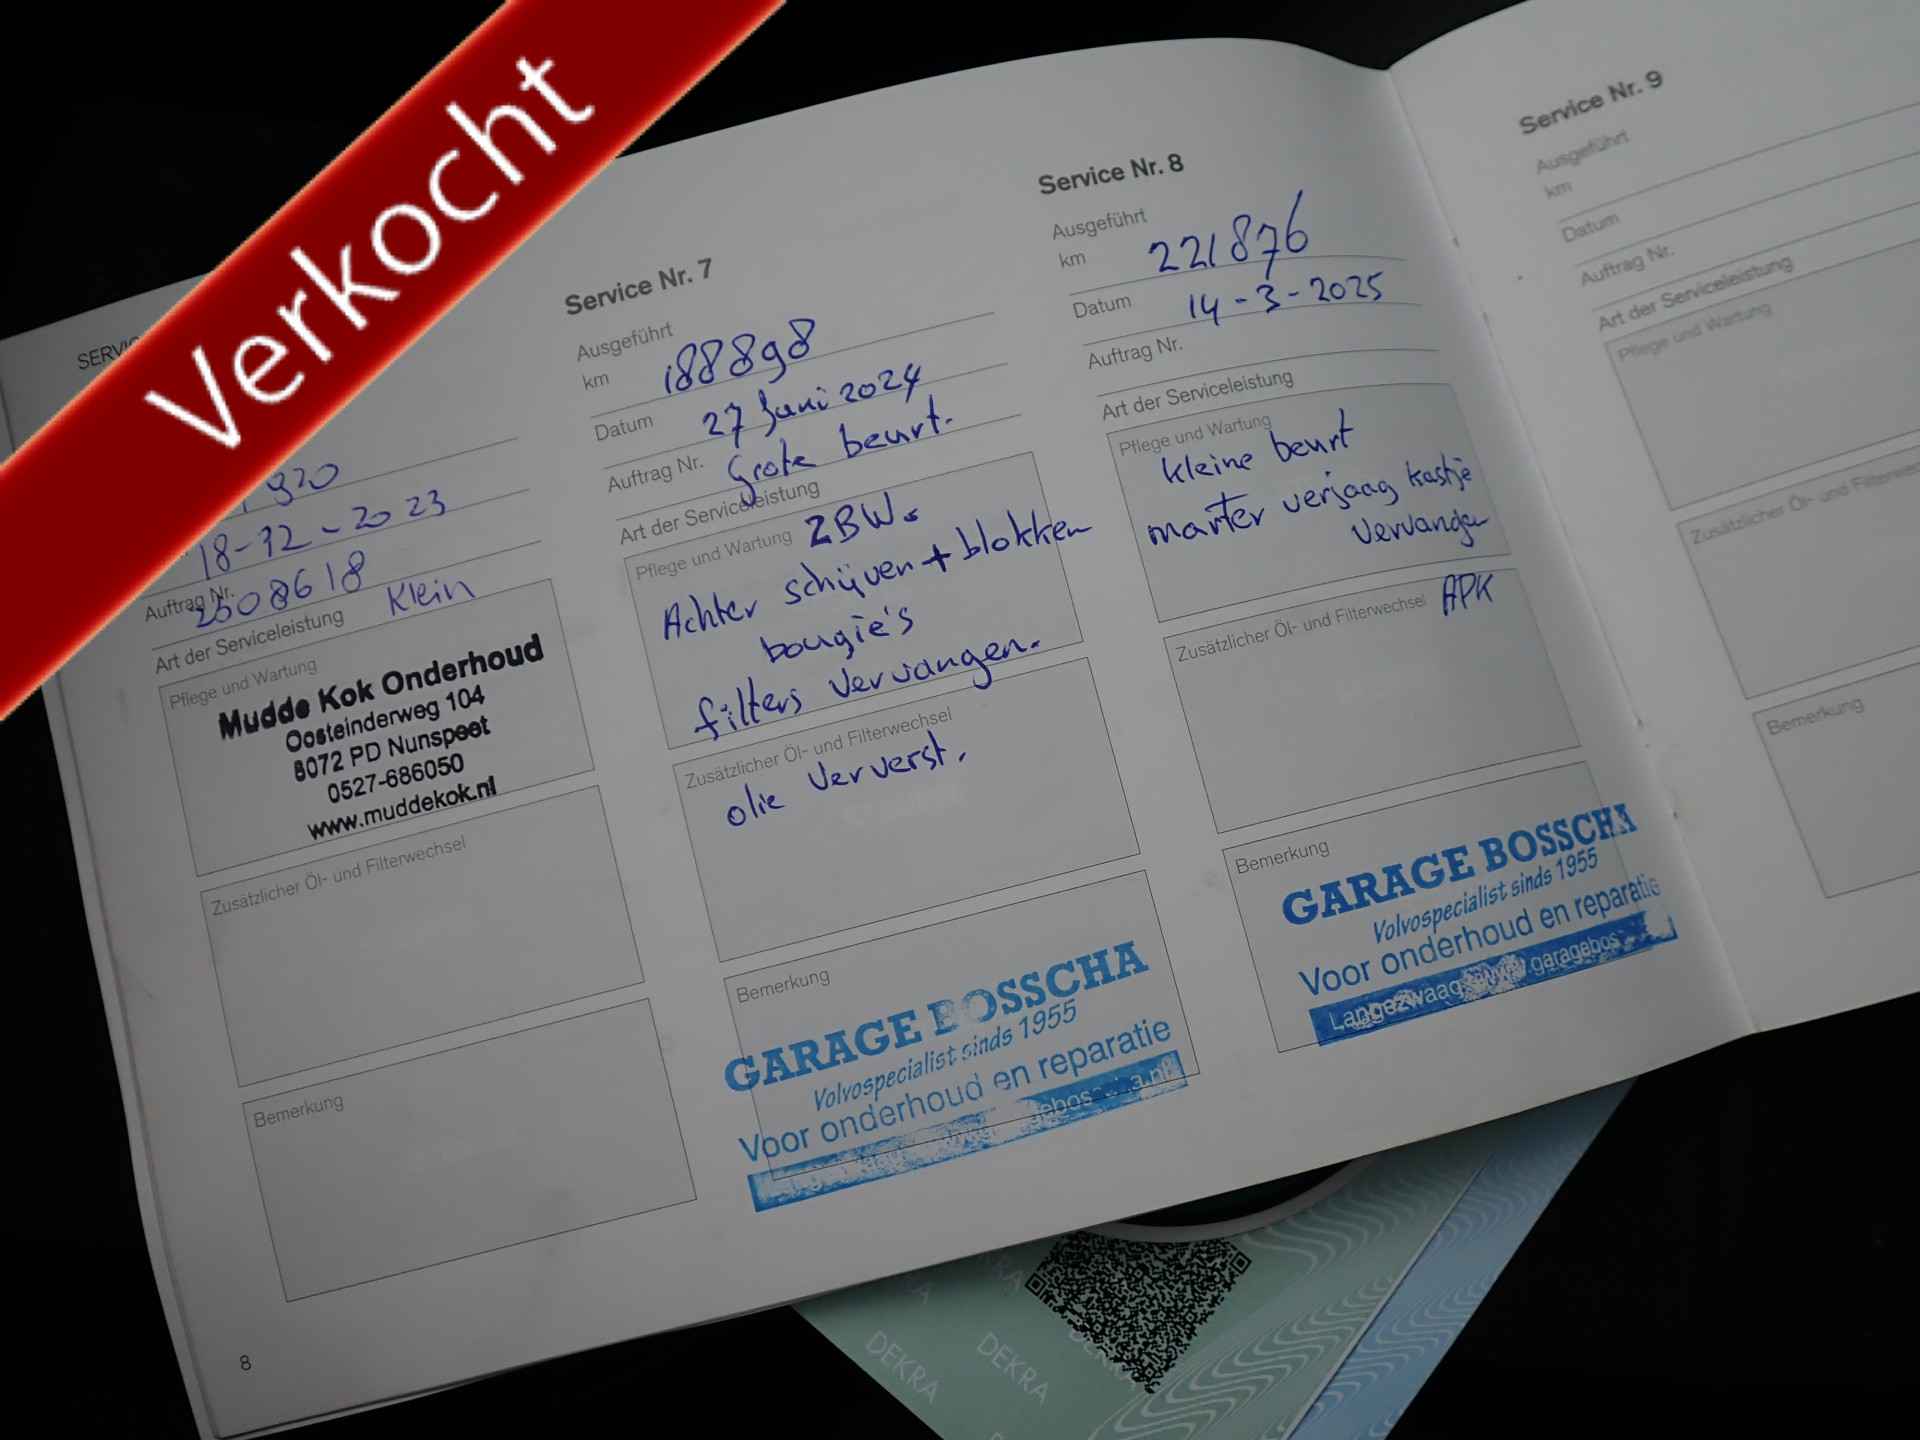 Verkocht
920
18-12-2023
Auftrag Nr.
2508618
Art der Serviceleistung Klein
Pflege und Wartung
Mudde Kok Onderhoud
Oosteinderweg 104
8072 PD Nunspeet
0527-686050
www.muddekok.nl
Zusätzlicher Öl- und Filterwechsel
Bemerkung
8
Service Nr. 7
Ausgeführt
km 188898
Datum 27 Juni 2024
Auftrag Nr. Grote beurt.
Art der Serviceleistung
Pflege und Wartung ZBW.
Achter schijven + blokken
bougie's
filters vervangen.
Zusätzlicher Öl- und Filterwechsel
olie ververst.
Bemerkung
GARAGE BOSSCHA
Volvospecialist sinds 1955
Voor onderhoud en reparatie
Service Nr. 8
Ausgeführt
km 221876
Datum 14-3-2025
Auftrag Nr.
Art der Serviceleistung
Pflege und Wartung
kleine beurt
marter verjaag kastje
vervangen
Zusätzlicher Öl- und Filterwechsel APK
Bemerkung
GARAGE BOSSCHA
Volvospecialist sinds 1955
Voor onderhoud en reparatie
Langezwaag www.garagebos
Service Nr. 9
Ausgeführt
km
Datum
Auftrag Nr.
Art der Serviceleistung
Pflege und Wartung
Zusätzlicher Öl- und Filterwechsel
Bemerkung
DEKRA
DEKRA